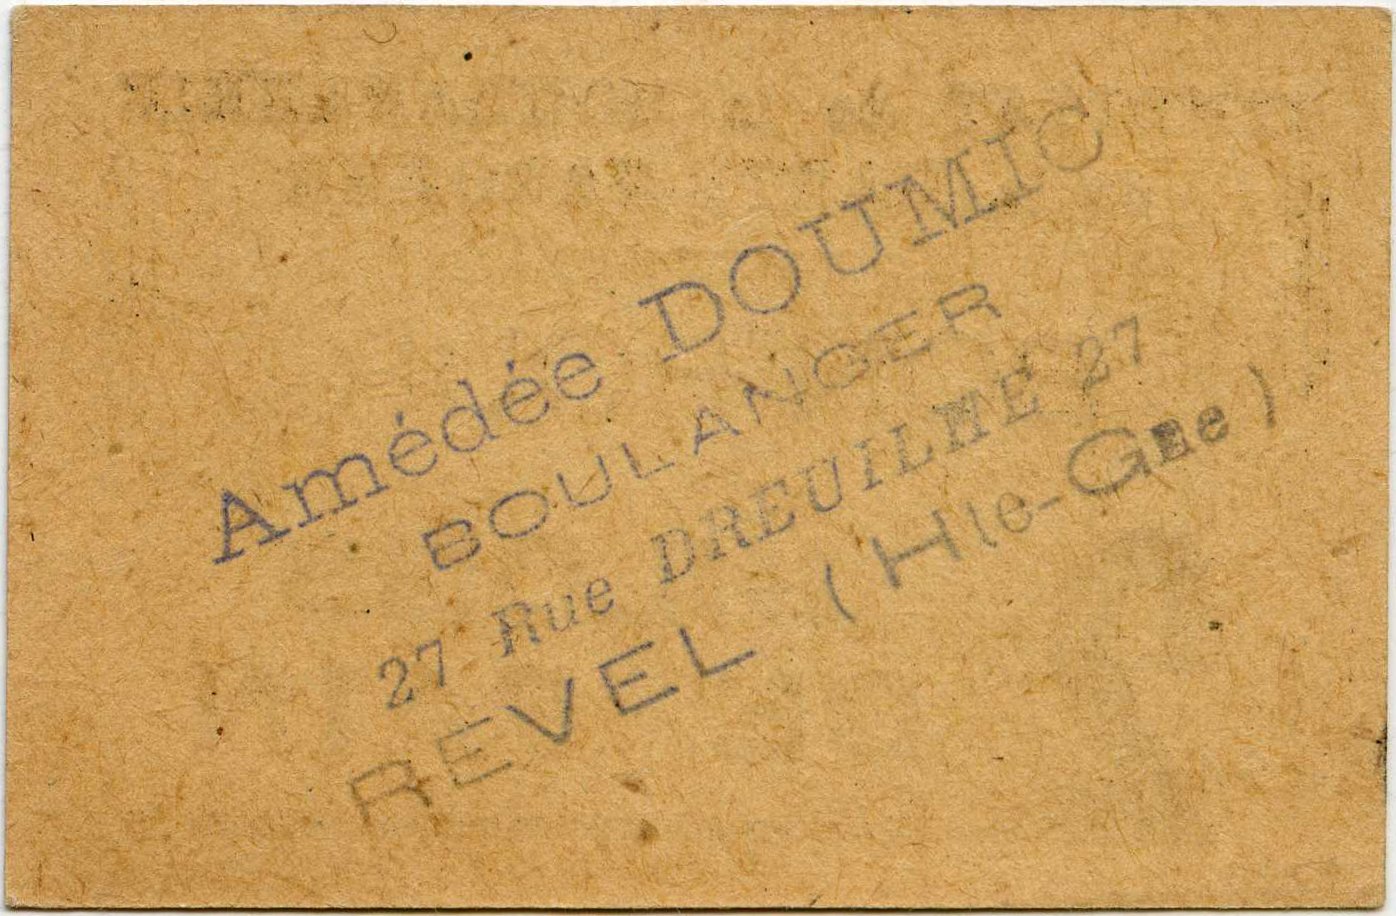 Amédée DOUMIC
BOULANGER
27 Rue DREUILHE 27
REVEL (Hte-Gne)